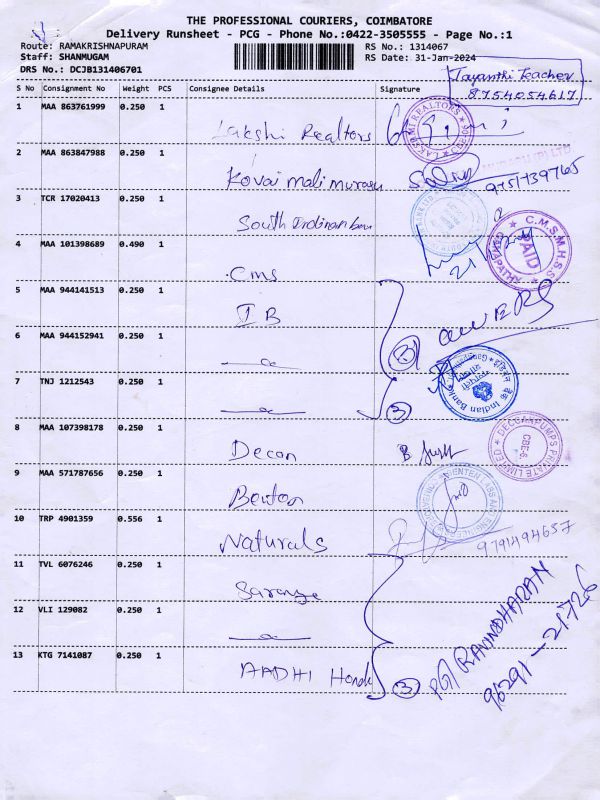 THE PROFESSIONAL COURIERS, COIMBATORE
Delivery Runsheet - PCG - Phone No.:0422-3505555 - Page No.:1
Route: RAMAKRISHNAPURAM
RS No.: 1314067
Staff: SHANMUGAM
RS Date: 31-Jan-2024
DRS No.: DCJB131406701
Jayanthi Teacher
8754054617
S No Consignment No Weight PCS Consignee Details Signature
1 MAA 863761999 0.250 1
Lakshi Realtors
LAKSHMI REALTORS
2 MAA 863847988 0.250 1
Kovai mali murasu
9751739765
3 TCR 17020413 0.250 1
South
4 MAA 101398689 0.490 1
Cms
C.M.S.M.H.S.S.
PAID
5 MAA 944141513 0.250 1
IB
6 MAA 944152941 0.250 1
7 TNJ 1212543 0.250 1
3
Indian Bank
8 MAA 107398178 0.250 1
Decan
DECCAN PUMPS PRIVATE LIMITED
CBE-6.
9 MAA 571787656 0.250 1
10 TRP 4901359 0.556 1
Naturals
9791494657
11 TVL 6076246 0.250 1
Saranya
12 VLI 129082 0.250 1
13 KTG 7141087 0.250 1
AADHI Honda
3
RAVINDHARAN
96291-21726